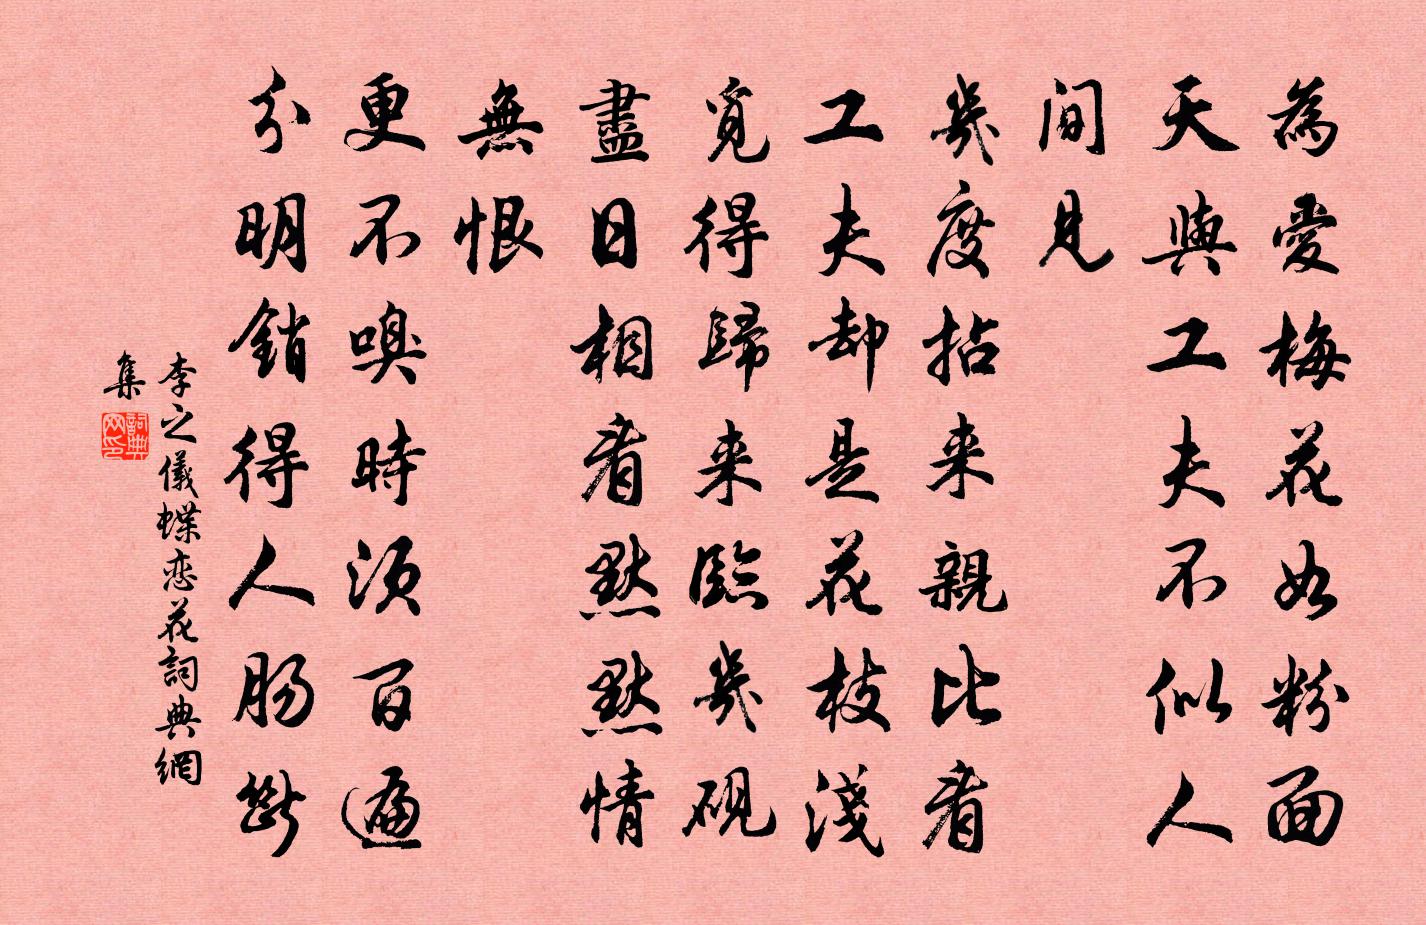 為愛梅花如粉面
天與工夫不似人
間見
幾度拈来親比看
工夫却是花枝淺
覓得歸来臨幾硯
盡日相看默默情
無恨
更不嗅時須百遍
分明銷得人腸斷
李之儀蝶恋花詞典網
集
詞典
网印